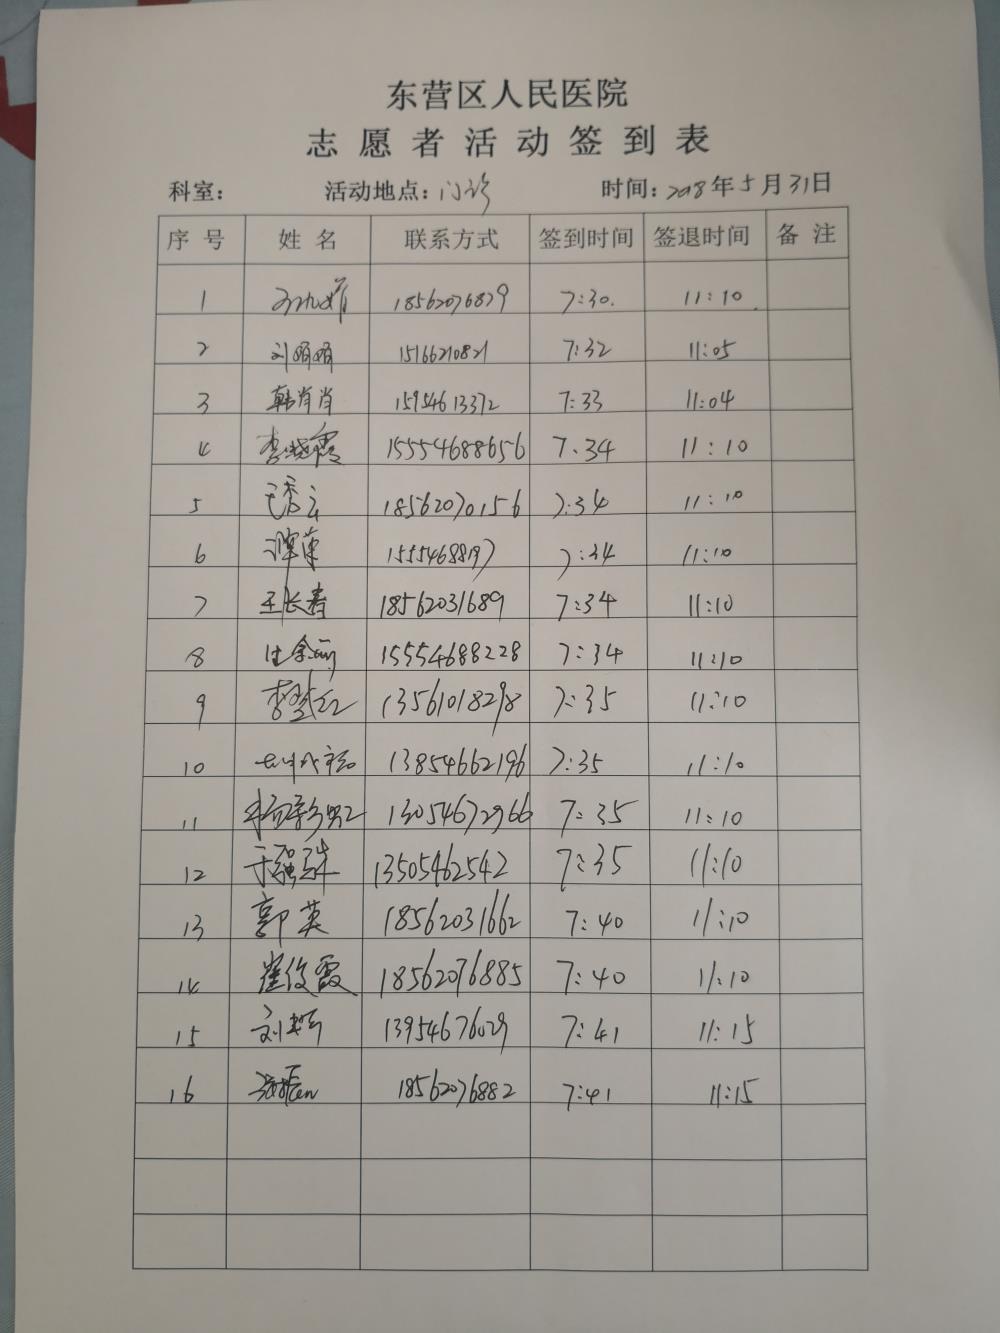 东营区人民医院
志愿者活动签到表
科室： 活动地点：门诊 时间：2018年5月31日
序号 姓名 联系方式 签到时间 签退时间 备注
1 18562076879 7:30. 11:10
2 刘娟娟 15166210821 7:32 11:05
3 韩肖肖 15954613372 7:33 11:04
4 李晓霞 15554688656 7:34 11:10
5 18562070156 7:34 11:10
6 谭菊 7:34 11:10
7 王长青 18562031689 7:34 11:10
8 15554688228 7:34 11:10
9 13561018298 7:35 11:10
10 13854662196 7:35 11:10
11 13054672966 7:35 11:10
12 于强珠 13505462542 7:35 11:10
13 郭英 18562031662 7:40 11:10
14 崔俊霞 18562076885 7:40 11:10
15 13954676029 7:41 11:15
16 18562076882 7:41 11:15